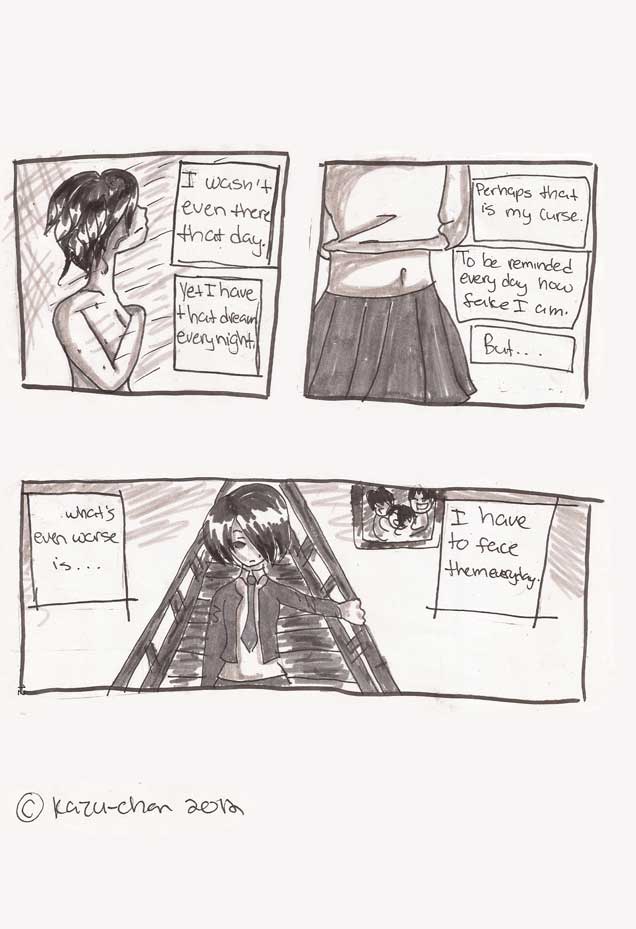 I wasn't
even there
that day.
Yet I have
that dream
everynight.
Perhaps that
is my curse.
To be reminded
every day how
fake I am.
But...
..what's
even worse
is...
I have
to face
themeveryday.
© Kazu-chan 2012